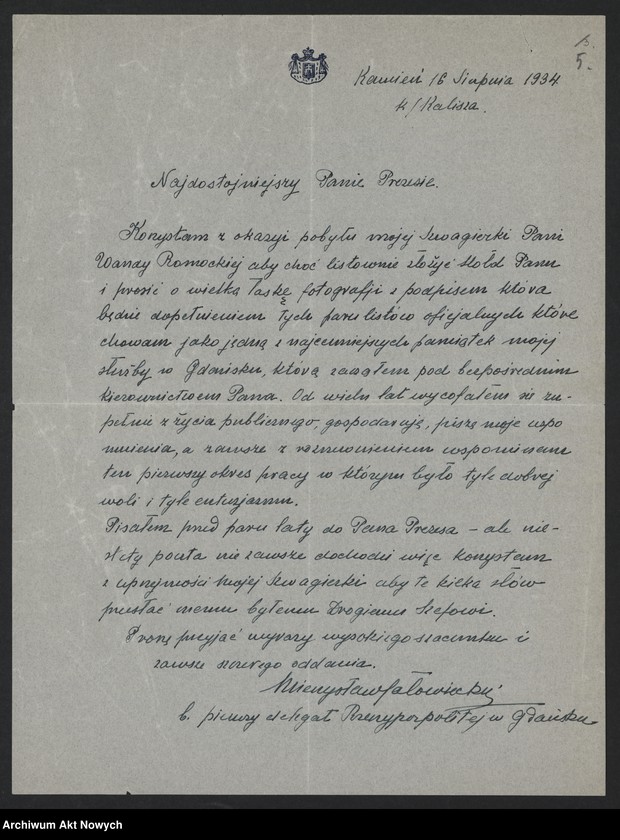 13.
5.
Kamień 16 Sierpnia 1934.
k/Kalisza.
Najdostojniejszy Panie Prezesie.
Korzystam z okazyi pobytu mojej Szwagierki Pani
Wandy Romockiej aby choć listownie złożyć Hołd Panu
i prosić o wielką łaskę fotografji z podpisem która
będzie dopełnieniem tych paru listów oficjalnych które
chowam jako jedną z najcenniejszych pamiątek mojej
służby w Gdańsku, którą zacząłem pod bezpośrednim
kierownictwem Pana. Od wielu lat wycofałem się zu-
pełnie z życia publicznego, gospodaruję, piszę moje wspo
mnienia, a zawsze z rozrzewnieniem wspominam
ten pierwszy okres pracy w którym było tyle dobrej
woli i tyle entuzjazmu.
Pisałem przed paru laty do Pana Prezesa – ale nie-
stety poczta nie zawsze dochodzi więc korzystam
z uprzejmości mojej Szwagierki aby te kilka słów
przesłać memu byłemu Drogiemu Szefowi.
Proszę przyjąć wyrazy wysokiego szacunku i
zawsze szczerego oddania.
Mieczysław Jałowiecki
b. pierwszy delegat Rzeczypospolitej w Gdańsku
Archiwum Akt Nowych